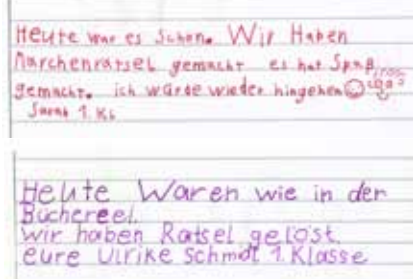 Heute war es Schön. Wir Haben
Märchenrätsel gemacht es hat Spaß
gemacht. ich würde wieder hingehen
Sarah 1. Kl
Heute Waren wie in der
Büchereel.
wir haben Rätsel gelöst.
eure Ulrike Schmidt 1. Klasse